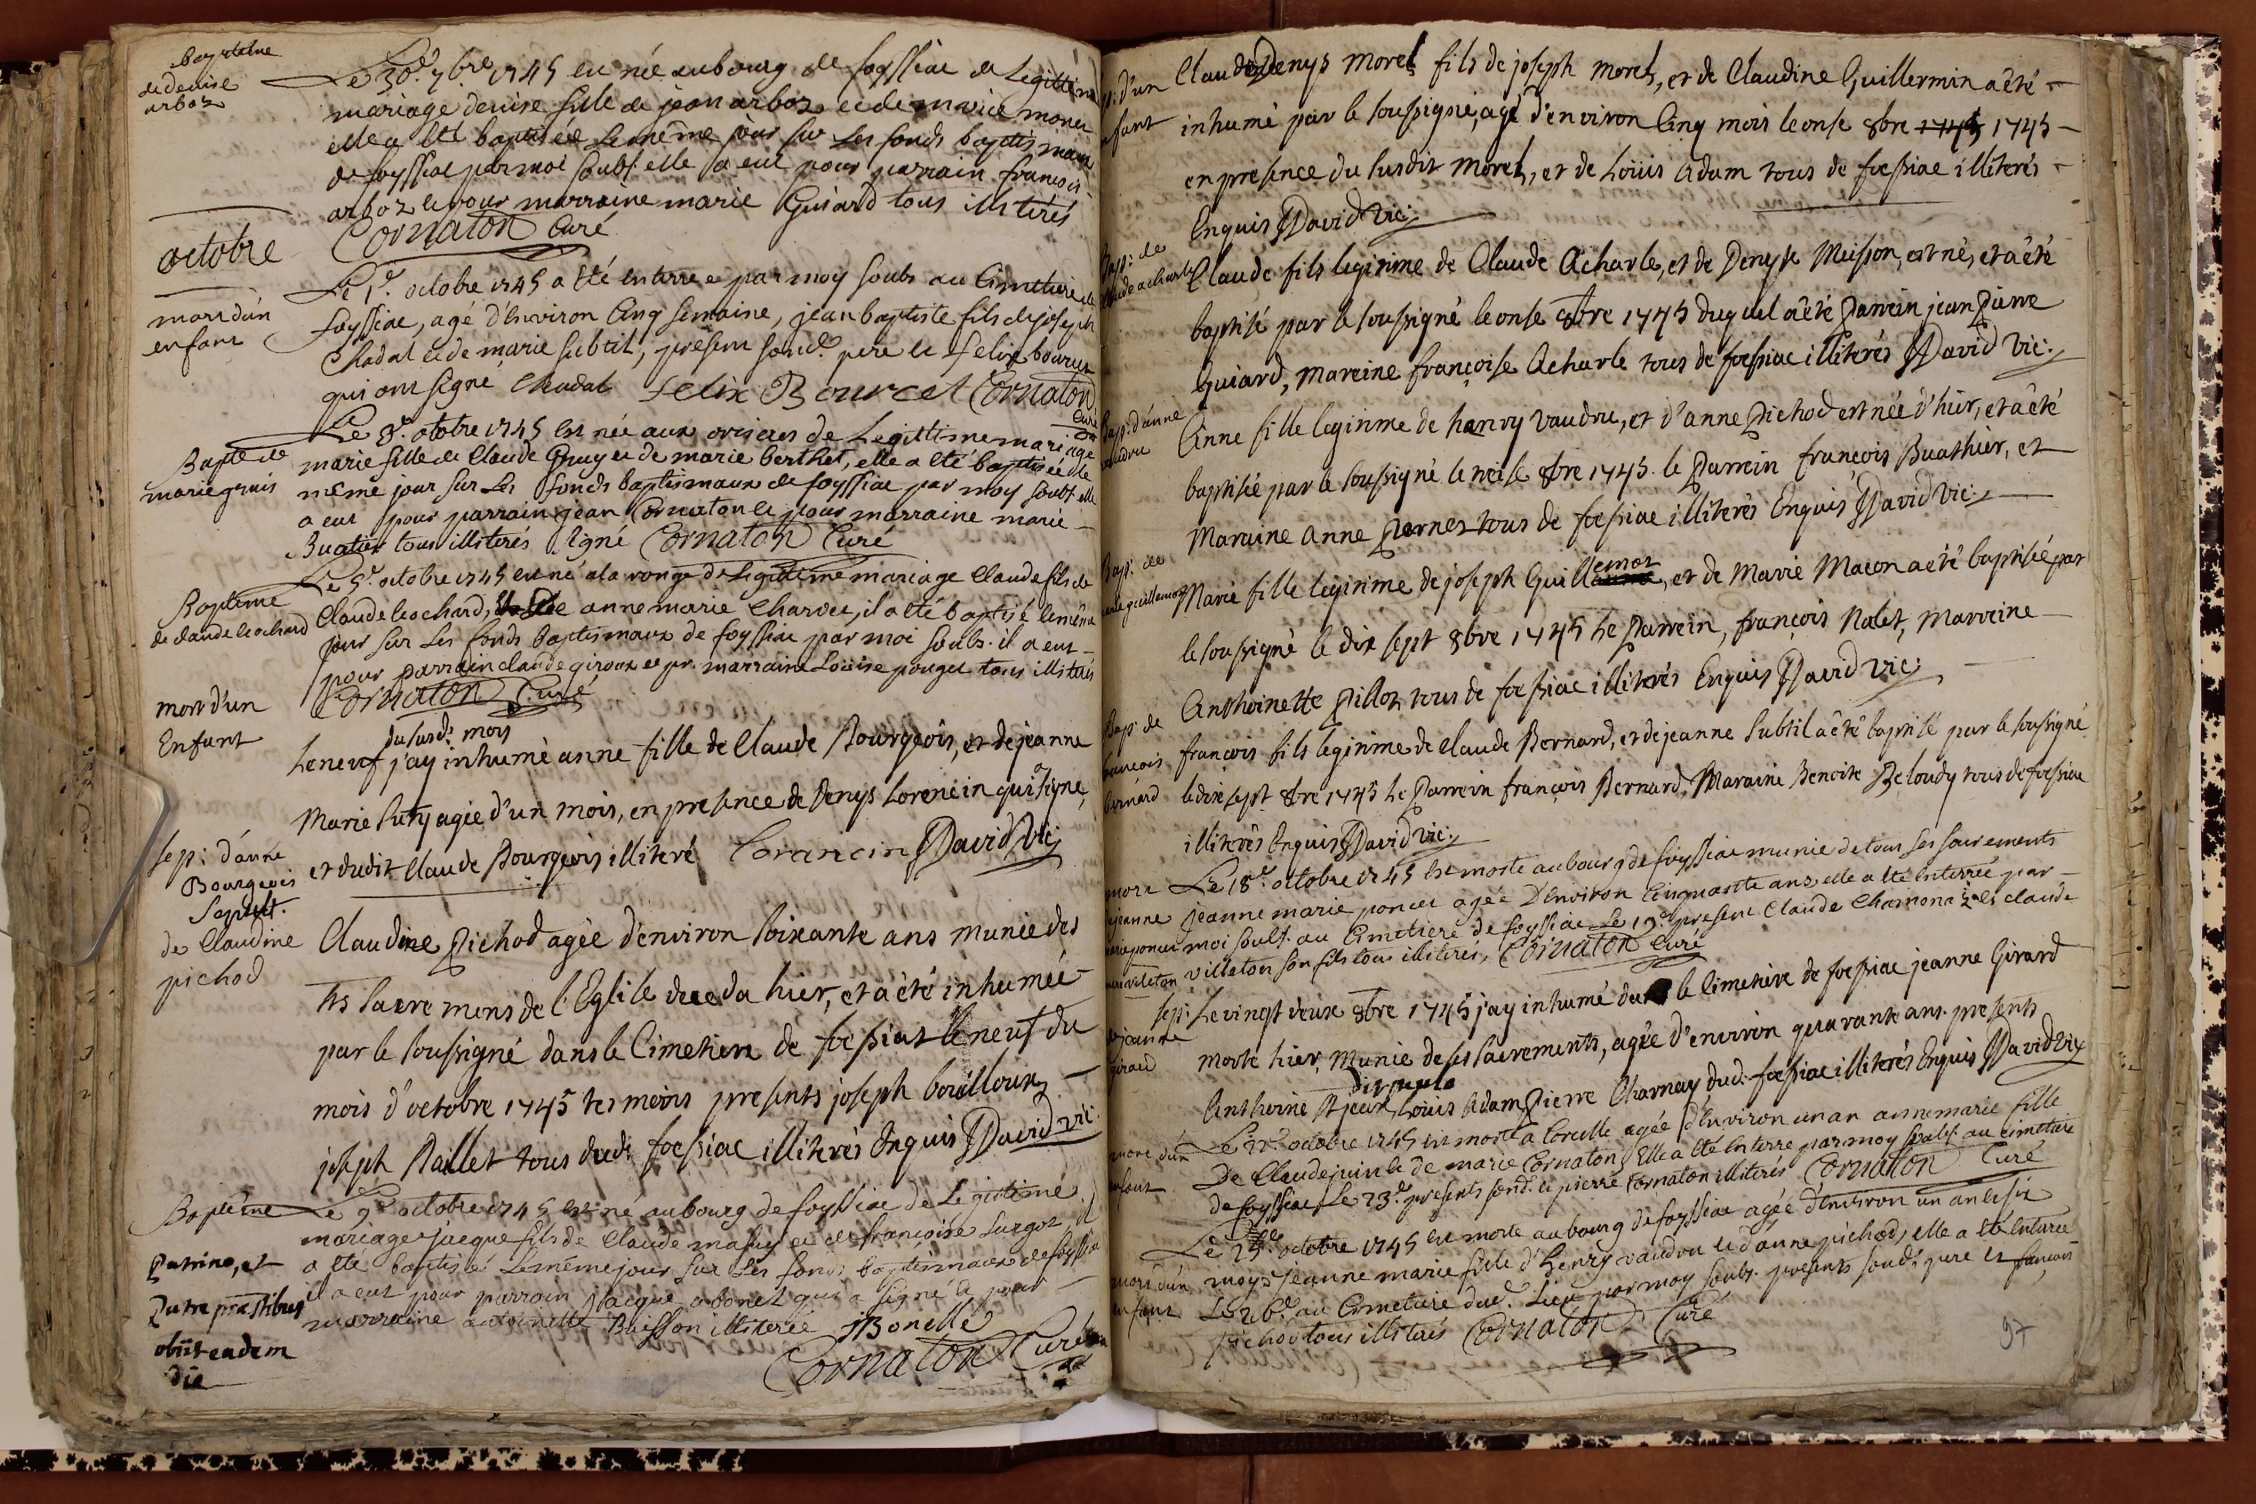 baptesme
de denise
arboz
Le 30e 7bre 1745 est née au bourg de foyssiac de Legittime
mariage denise fille de jean arboz et de marie monet
elle a été baptisée le même jour sur Les fonds baptismaux
de foyssiac par moi soubs. elle a eut pour parrain francois
arboz et pour marraine marie Guiard tous illiterés
Cornaton Curé
octobre
mort d'un
enfant
Le 1r. octobre 1745 a été enterré par moy soubs au Cimetiere de
foyssiac, agé d'environ Cinq semaine, jean baptiste fils de joseph
Chadal et de marie subtil, present sond. pere et felix bourcet
qui ont signé Chadal Felix Bourcet Cornaton
Curé
Bapte. de
marie gruis
Le 3e. octobre 1745 est née aux orciers de Legittime mariage
marie fille de Claude Gruy et de marie berthet, elle a été baptisée le
même jour sur Les fonds baptismaux de foyssiac par moy soubs. elle
a eut pour parrain jean Cornaton et pour marraine marie
Buatier tous illiterés signé Cornaton Curé
Bapteme
de claude leochard
Le 5e. octobre 1745 est né a la ronge de Legittime mariage Claude fils de
Claude leochard, et de anne marie Charvet, il a été baptisé le même
jour sur Les fonds Baptismaux de foyssiac par moi soubs. il a eut
pour parrain claude giroux et pr. marraine Louise pouget tous illiterés
Cornaton Curé
mort d'un
Enfant
du susdt. mois
Le neuf j'ay inhumé anne fille de Claude Bourgeois, et de jeanne
Marie Puty agée d'un mois, en presence de Denys Lorencin qui a signé,
et dudit Claude Bourgeois illiteré Lorancin David Vic:
sep: d'anne
Bourgeois
Sepult.
de Claudine
pichod
Claudine Pichod agée d'environ soixante ans munie des
sts sacremens de l'Eglise deceda hier, et a été inhumée
par le soussigné dans le Cimetiere de foessiat le neuf du
mois d'octobre 1745 tesmoins presents joseph bouilloux
joseph Paillet tous dudt. foessiac illiterés Enquis David vic.
Bapteme
Le 9e. octobre 1745 est né au bourg de foyssiac de Legittime
mariage jacque fils de Claude masuy et de francoise surgot, il
a été baptisé Le même jour sur Les fonds baptismaux de foyssia
il a eut pour parrain Jacque abonet qui a signé et pour
marraine antoinette Buisson illiterée JBonelle
Cornaton Curé
Patrino, et
Patre præstibus
obiit eadem
die
sp: d'un
enfant
Claude Denys Morel fils de joseph Morel, et de Claudine Guillermin a été
inhumé par le soussigné, agé d'environ Cinq mois le onse 8bre 1745 1745
en presence du susdit Morel, et de Loüis Adam tous de foessiac illiterés
Enquis David Vic:
Bap: de
claude acharle
Claude fils legitime de Claude Acharle, et de Denyse Muisson, est né, et a été
baptisé par le soussigné le onse 8bre 1745 duquel a été Parrein jean Pierre
Guiard, Marreine françoise Acharle tous de foessiac illiterés David Vic:
Bap: d'anne
vaudru
Anne fille legitime de hanry Vaudru, et d'anne Pichod est née d'hier, et a été
baptisée par le soussigné le treise 8bre 1745. le Parrein francois Buathier, et
Maraine Anne Pernet tous de foessiac illiterés Enquis David Vic:
Bap: de
marie guillemot
Marie fille legitime de joseph Guillemot, et de Marie Macon a été baptisée par
le soussigné le dix sept 8bre 1745 Le Parrein, françois Nalet, Marreine
Anthoinette Pillot tous de foessiac illiterés Enquis David Vic:
Bap: de
francois
bernard
francois fils legitime de Claude Bernard, et de jeanne Subtil a été baptisé par le soussigné
le dix sept 8bre 1745 Le Parrein françois Bernard, Maraine Benoite Beloudy tous de foessiac
illiterés Enquis David Vic:
mort
de jeanne
marie poncet
Le 18e. octobre 1745 est morte au bourg de foyssiac munie de tous ses sacrements
jeanne marie poncet agée D'Environ Cinquante ans elle a été enterrée par
moi soubs. au Cimetiere de foyssiac Le 19e. present Claude Chamona et claude
villeton son fils tous illiterés, Cornaton Curé
sep:
de jeanne
girard
Le vingt deux 8bre 1745 j'ay inhumé dans le Cimetiere de foessiac jeanne Girard
morte hier, munie de ses sacrements, agée d'environ quarante ans presents
Anthoine Loüis Adam Pierre Charnay dud. foessiac illiterés Enquis David Vic
mort d'un
enfant
octobre 1745 est morte a Corcelle agée d'Environ un an anne marie fille
De Claude juin et de marie Cornaton, Elle a été Enterré par moy soubs. au cimetiere
de foyssiac Le 23e. presents sond. et pierre Cornaton illiterés Cornaton Curé
mort d'un
enfant
Le 25e. octobre 1745 est morte au bourg de foyssiac agée d'Environ un an et six
moys jeanne marie fille d'henry vaudru et d'anne pichod, elle a été Enterrée
Le 26e. au Cimetiere dud. Lieu par moy soubs. presents soud. pere et francois
pichod tous illiterés Cornaton Curé
97